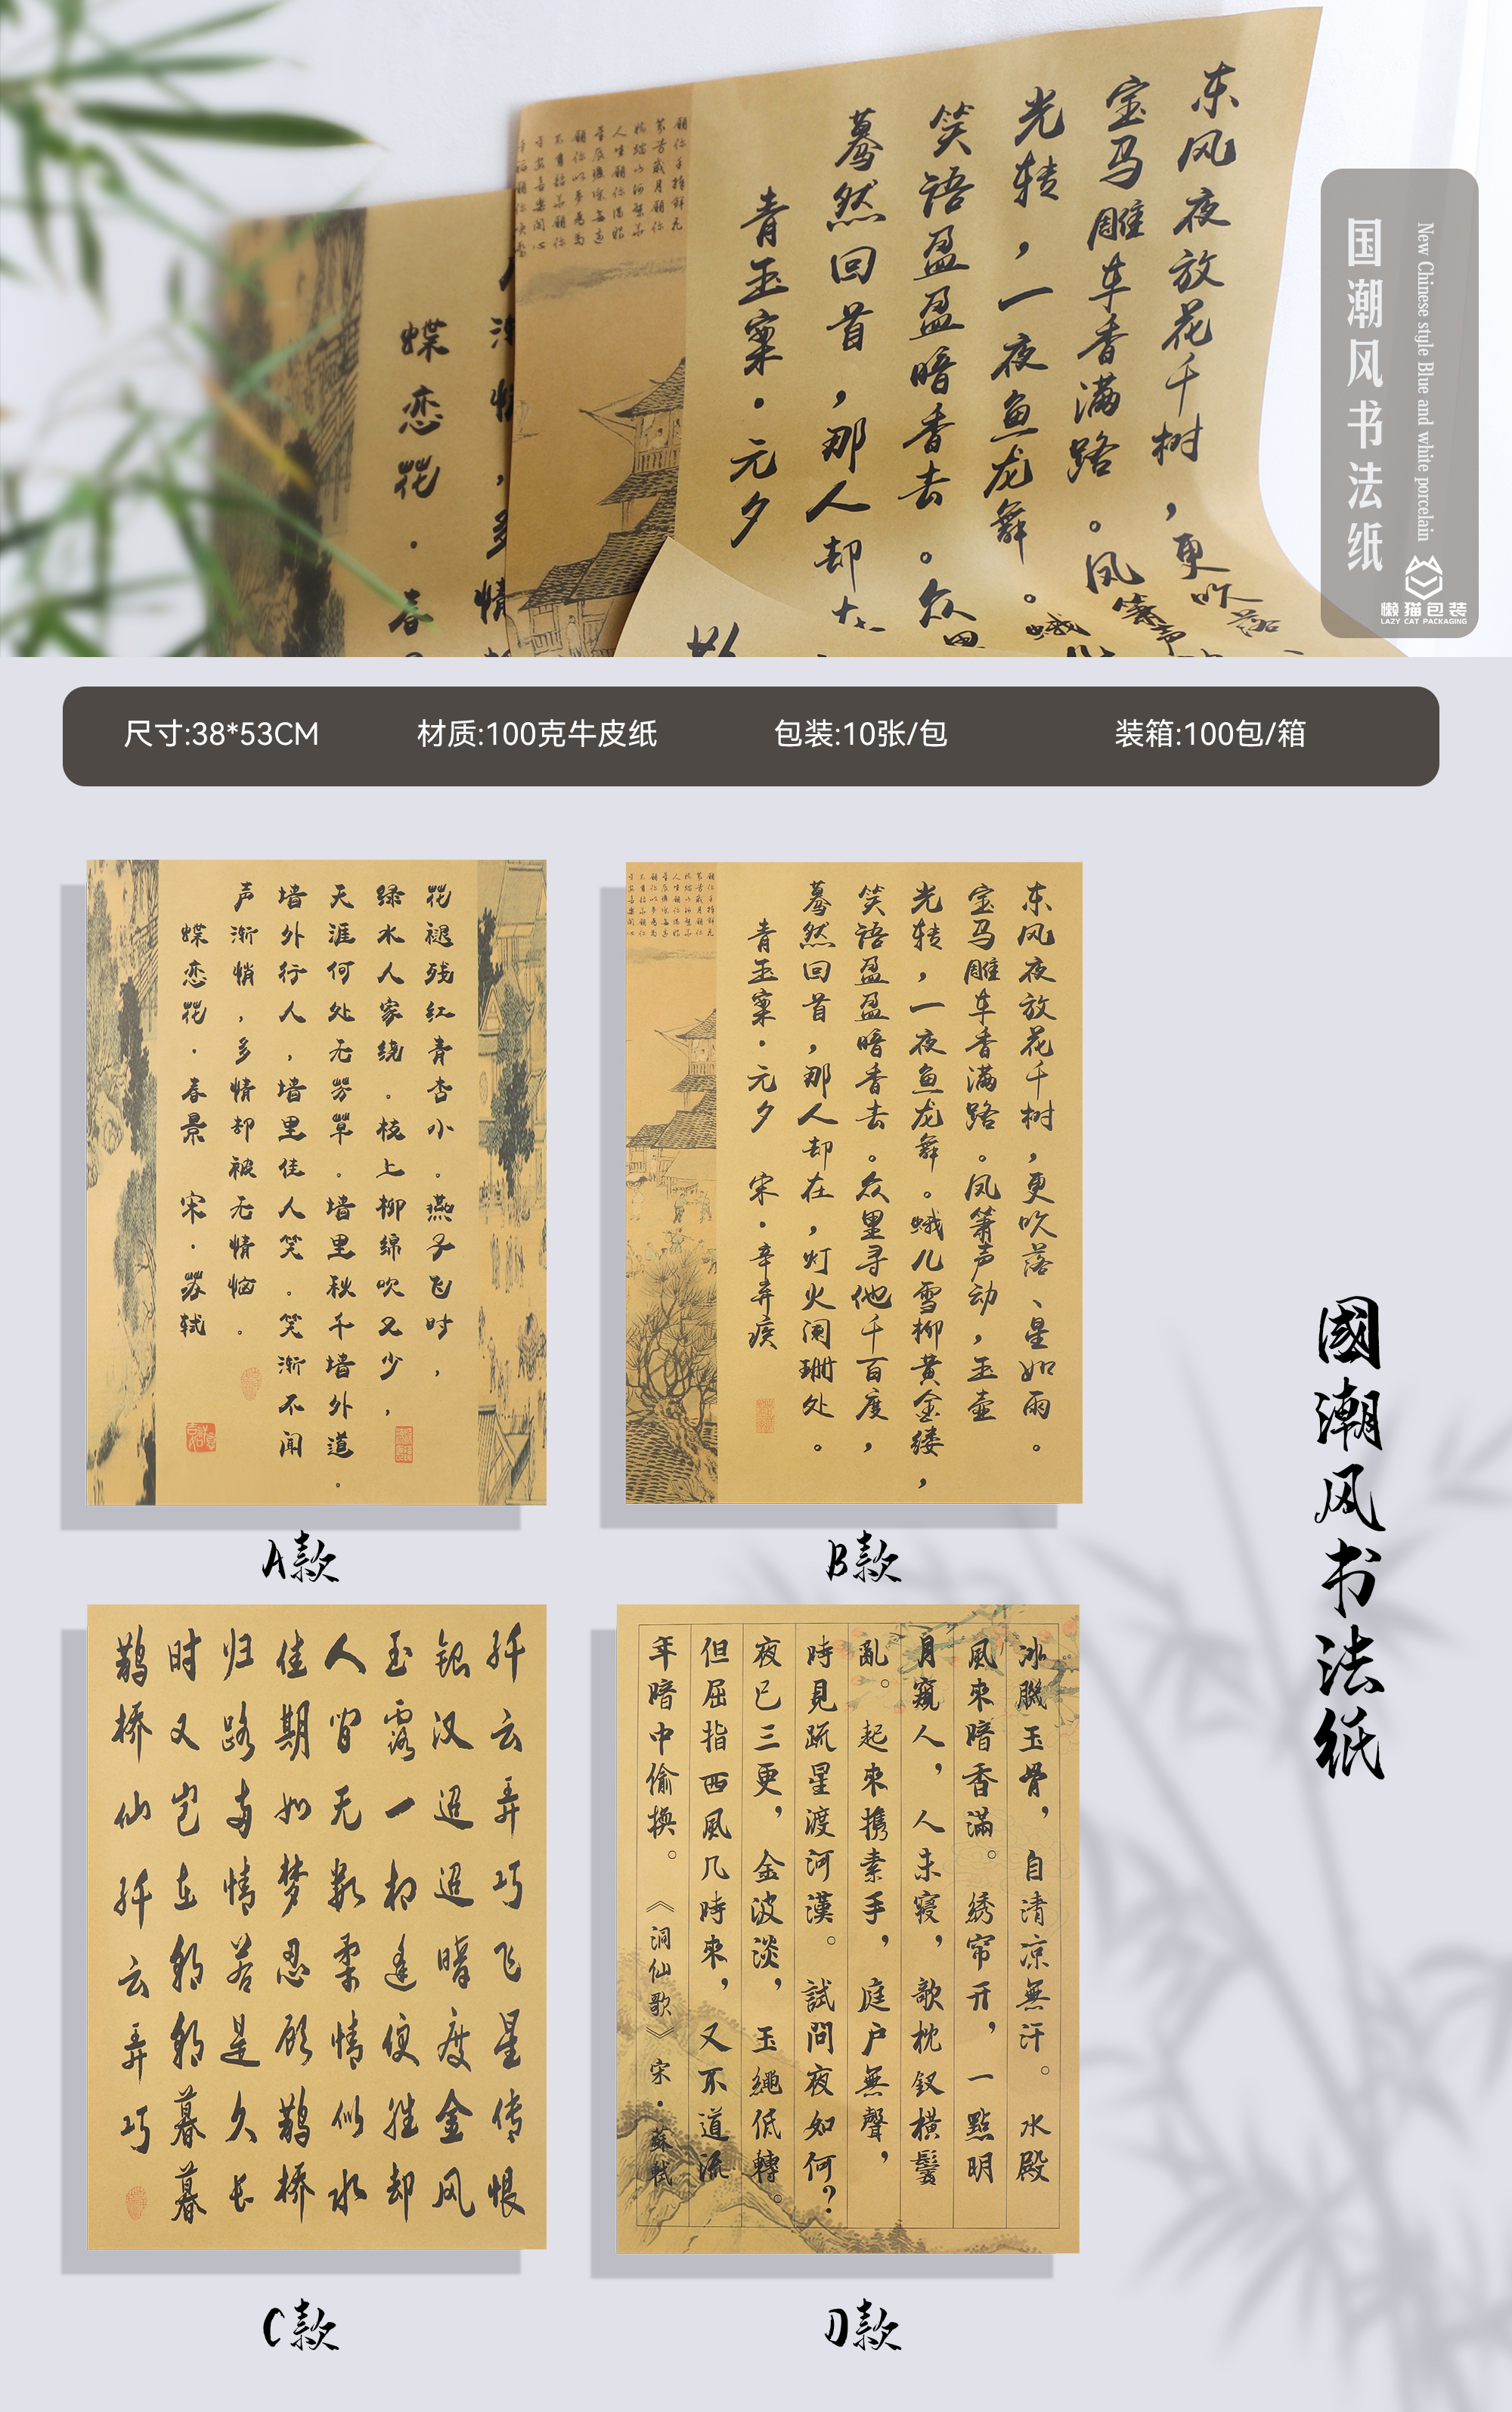 东风夜放花千树，更吹落、
宝马雕车香满路。凤箫声
光转，一夜鱼龙舞。蛾
笑语盈盈暗香去。众里
蓦然回首，那人却在
青玉案·元夕
蝶恋花·春
国潮风书法纸
New Chinese style Blue and white porcelain
懒猫包装
LAZY CAT PACKAGING
尺寸:38*53CM
材质:100克牛皮纸
包装:10张/包
装箱:100包/箱
花褪残红青杏小。燕子飞时，
绿水人家绕。枝上柳绵吹又少，
天涯何处无芳草。墙里秋千墙外道。
墙外行人，墙里佳人笑。笑渐不闻
声渐悄，多情却被无情恼。
蝶恋花·春景 宋·苏轼
A款
东风夜放花千树，更吹落、星如雨。
宝马雕车香满路。凤箫声动，玉壶
光转，一夜鱼龙舞。蛾儿雪柳黄金缕，
笑语盈盈暗香去。众里寻他千百度，
蓦然回首，那人却在，灯火阑珊处。
青玉案·元夕 宋·辛弃疾
B款
纤云弄巧飞星传恨
银汉迢迢暗度金风
玉露一相逢便胜却
人间无数柔情似水
佳期如梦忍顾鹊桥
归路两情若是久长
时又岂在朝朝暮暮
鹊桥仙纤云弄巧
C款
冰肌玉骨，自清凉無汗。水殿
風來暗香滿。绣帘开，一點明
月窺人，人未寝，歌枕钗橫鬓
亂。起來携素手，庭户無聲，
時見疏星渡河漢。試問夜如何?
夜已三更，金波淡，玉繩低轉。
但屈指西風几時來，又不道流
年暗中偷换。《洞仙歌》宋·蘇軾
D款
國潮风书法纸